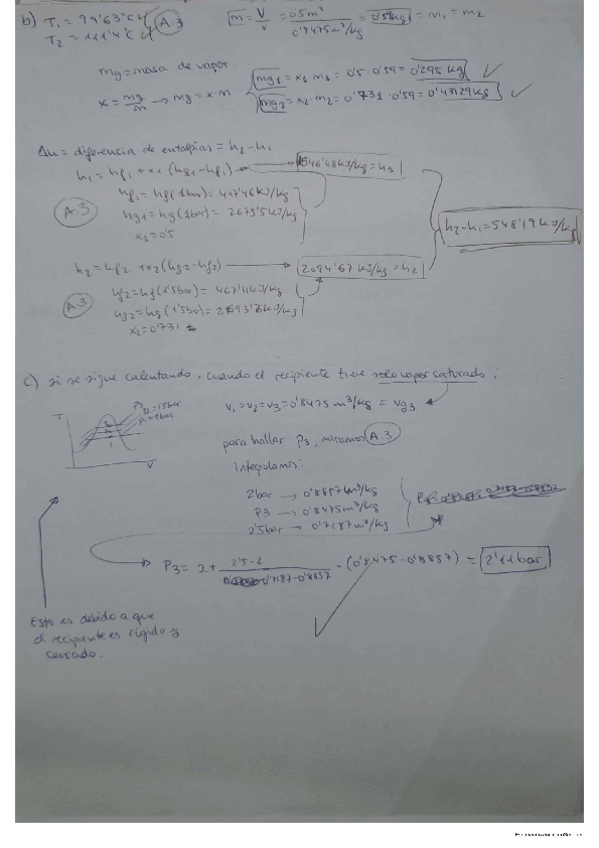 b) T₁ = 99'63ºC
T₂ = 111'4ºC
A.3
m = V/v = 0'5m³ / 0'8475m³/kg = 0'59kg = m₁ = m₂
mg = masa de vapor.
x = mg/m → mg = x·m
mg₁ = x₁·m₁ = 0'5·0'59 = 0'295 kg
mg₂ = x₂·m₂ = 0'731·0'59 = 0'43129kg
Δh = diferencia de entalpías = h₂-h₁
h₁ = hf₁ + x₁(hg₁-hf₁)
1546'48kJ/kg = h₁
hf₁ = hf(1bar) = 417'46kJ/kg
hg₁ = hg(1bar) = 2675'5kJ/kg
x₁ = 0'5
A.3
h₂-h₁ = 548'19kJ/kg
h₂ = hf₂ + x₂(hg₂-hf₂)
2094'67 kJ/kg = h₂
A.3
hf₂ = hf(1'5bar) = 467'11kJ/kg
hg₂ = hg(1'5bar) = 2693'6kJ/kg
x₂ = 0'731
c) si se sigue calentando, cuando el recipiente tiene solo vapor saturado:
T
P₃
P₂=1'5bar
P₁=1bar
v
v₁ = v₂ = v₃ = 0'8475 m³/kg = vg₃
para hallar P₃, miramos A.3
Interpolamos:
2bar → 0'8857m³/kg
P₃ → 0'8475m³/kg
2'5bar → 0'7187m³/kg
P₃ = 2 + (2'5-2)/(0'7187-0'8857) · (0'8475-0'8857) = 2'11bar
Esto es debido a que
el recipiente es rígido y
cerrado.